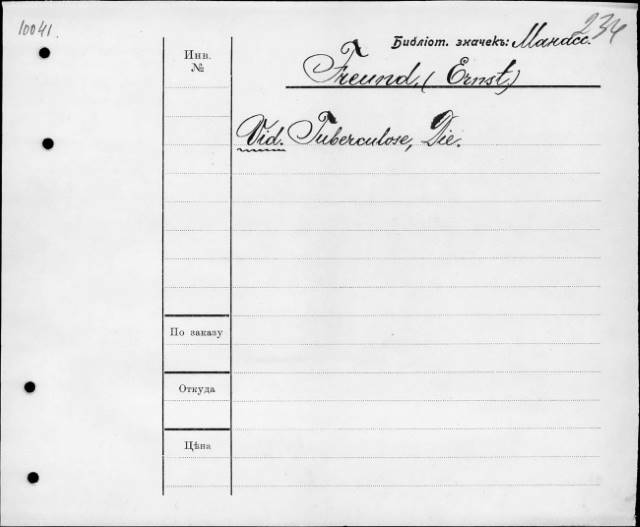 10041.
234
Библіот. значекъ: Манасс.
Инв.
№
Freund, (Ernst,)
Vid. Tuberculose, Die.
По заказу
Откуда
Цѣна